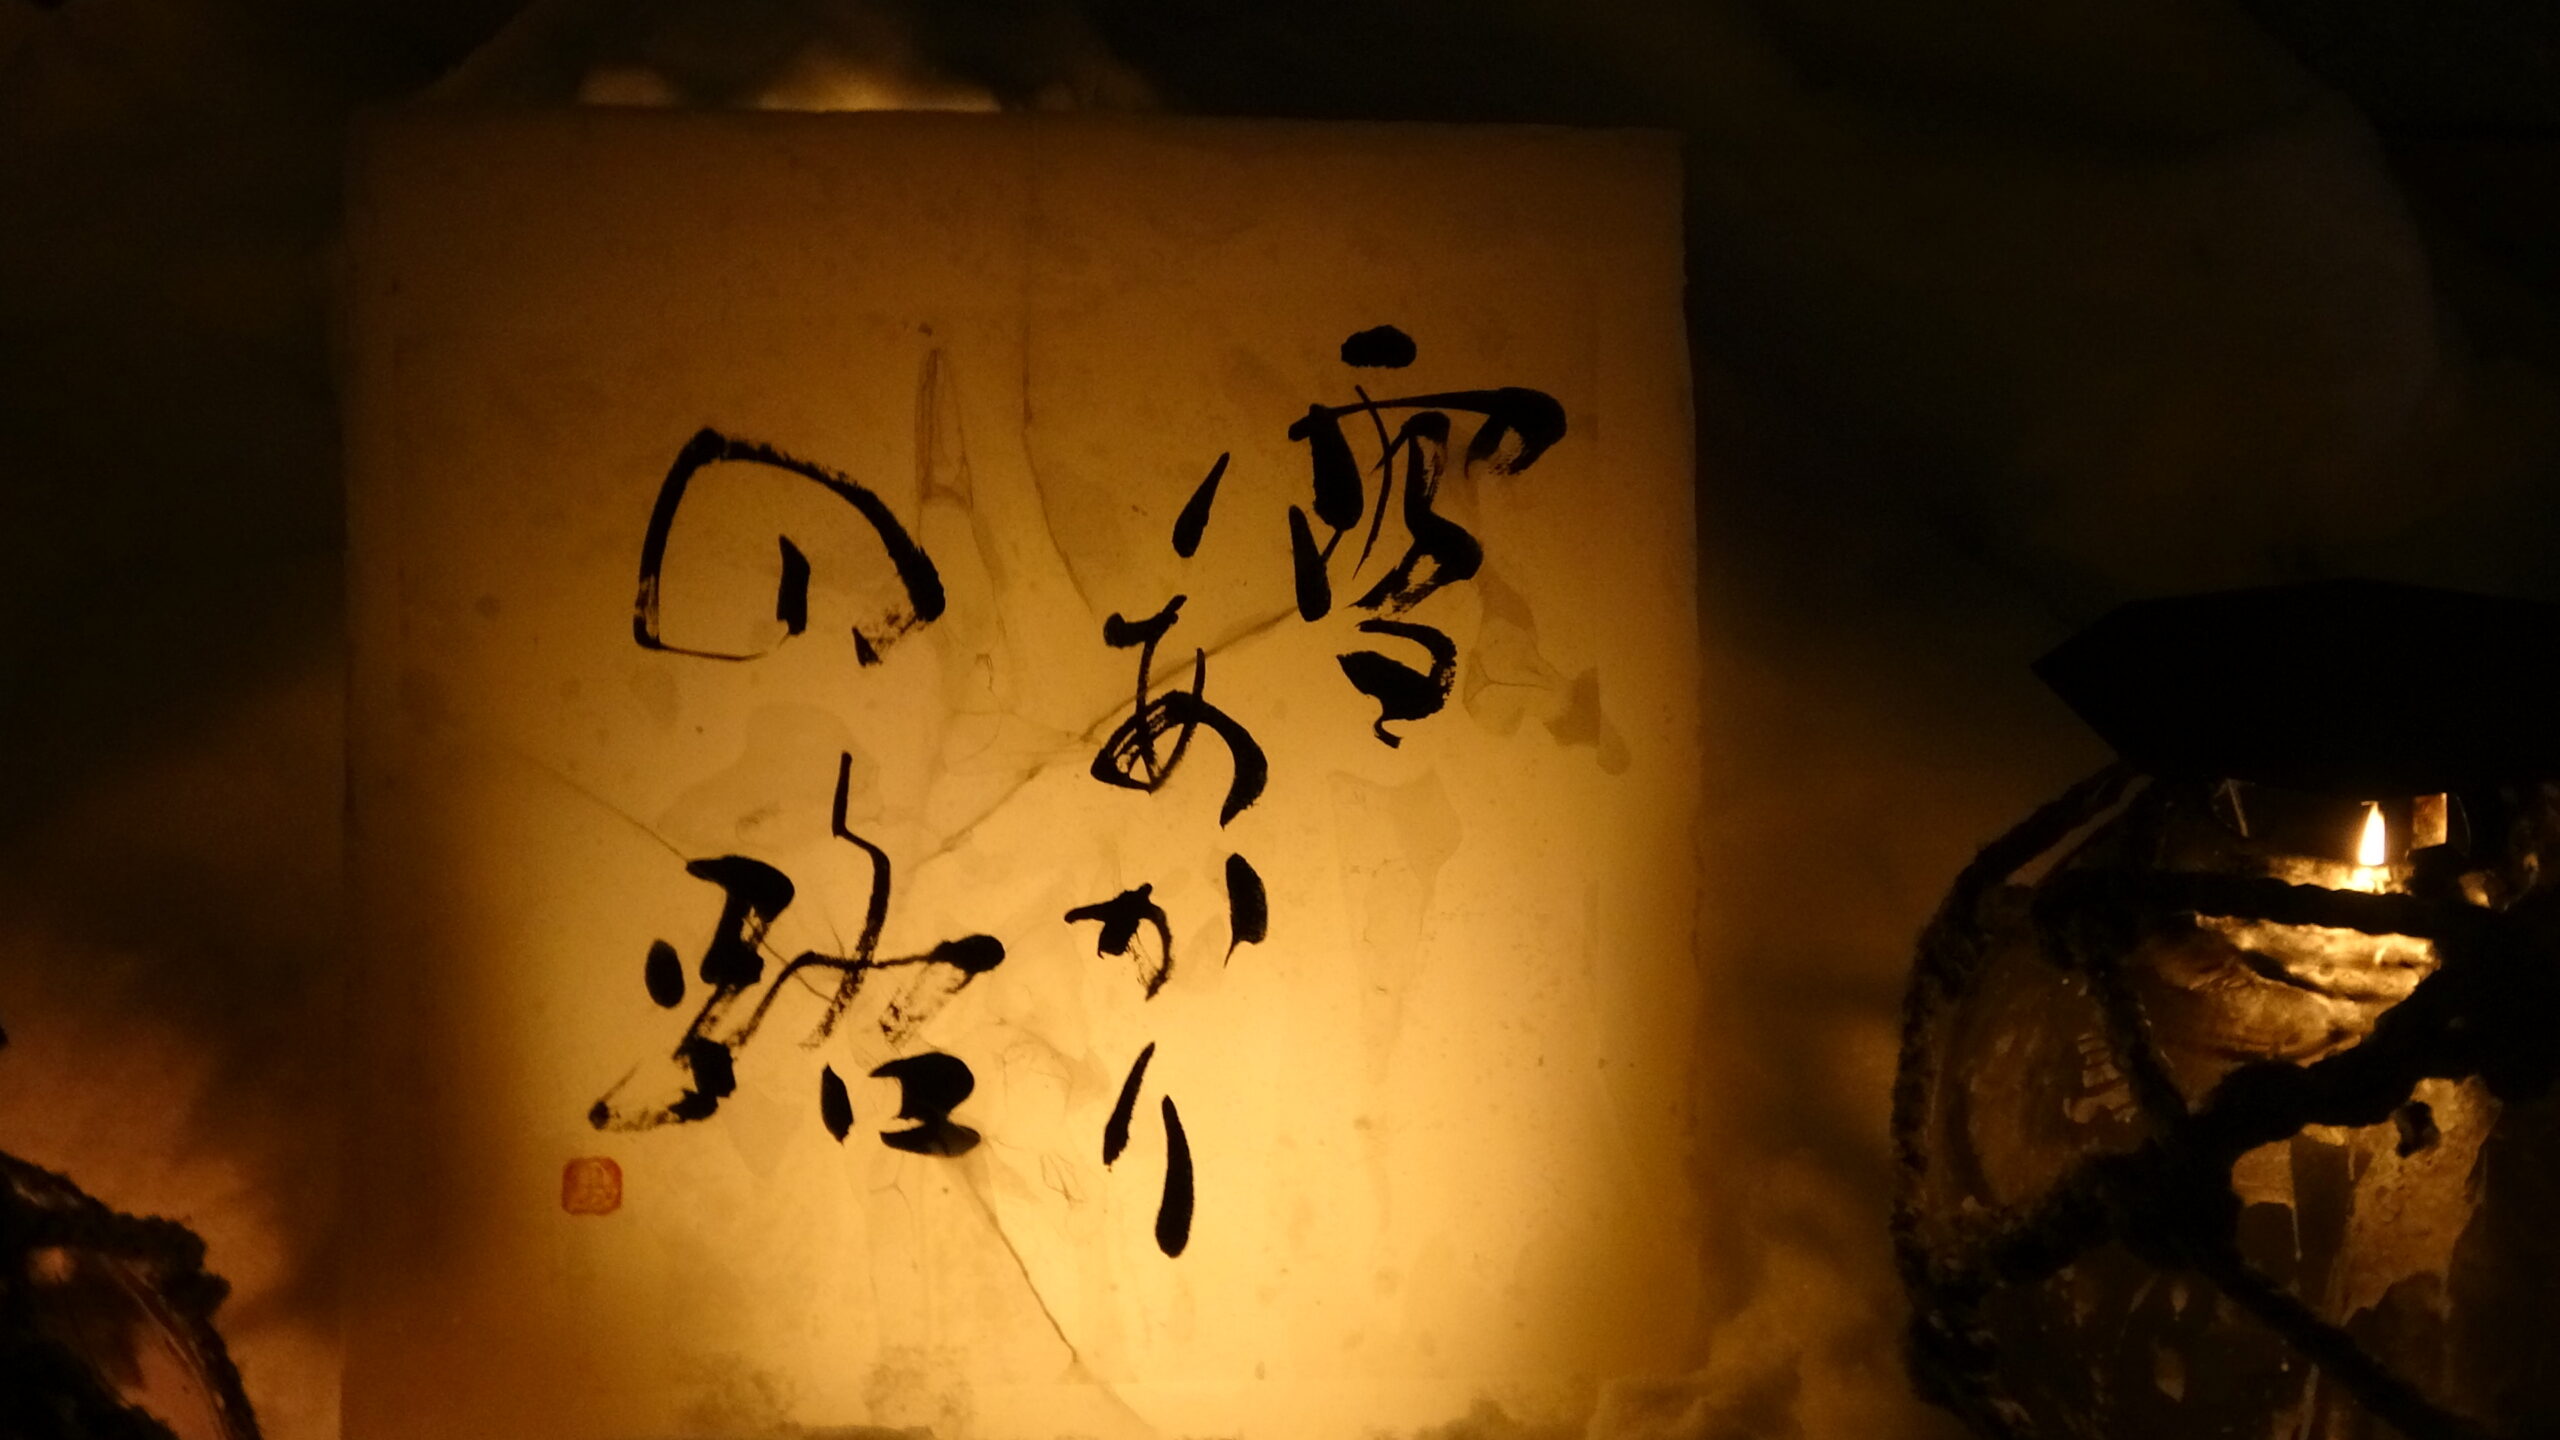 雪あかり
の路